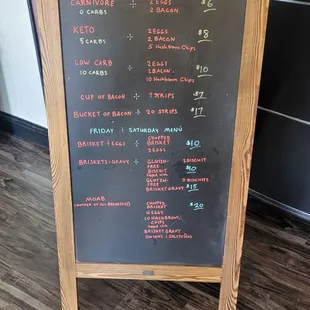 CARNIVORE ÷ 2 EGGS $6
0 CARBS 2 BACON
KETO ÷ 2 EGGS $8
5 CARBS 2 BACON
5 Hashbrown Chips
LOW CARB ÷ 2 EGGS
10 CARBS 2 BACON $10
10 Hashbrown Chips
CUP OF BACON ÷ 7 STRIPS $7
BUCKET OF BACON ÷ 20 STRIPS $17
FRIDAY & SATURDAY MENU
BRISKET & EGGS ÷ CHOPPED BRISKET $10
2 EGGS
BRISKET & GRAVY ÷ GLUTEN-FREE BISCUIT 1 BISCUIT
$10
GLUTEN-FREE 2 BISCUITS
BRISKET GRAVY $15
MOAB CHOPPED $20
BRISKET
4 EGGS
10 HASHBROWN
CHIPS
BRISKET GRAVY
ONIONS & JALAPEÑOS